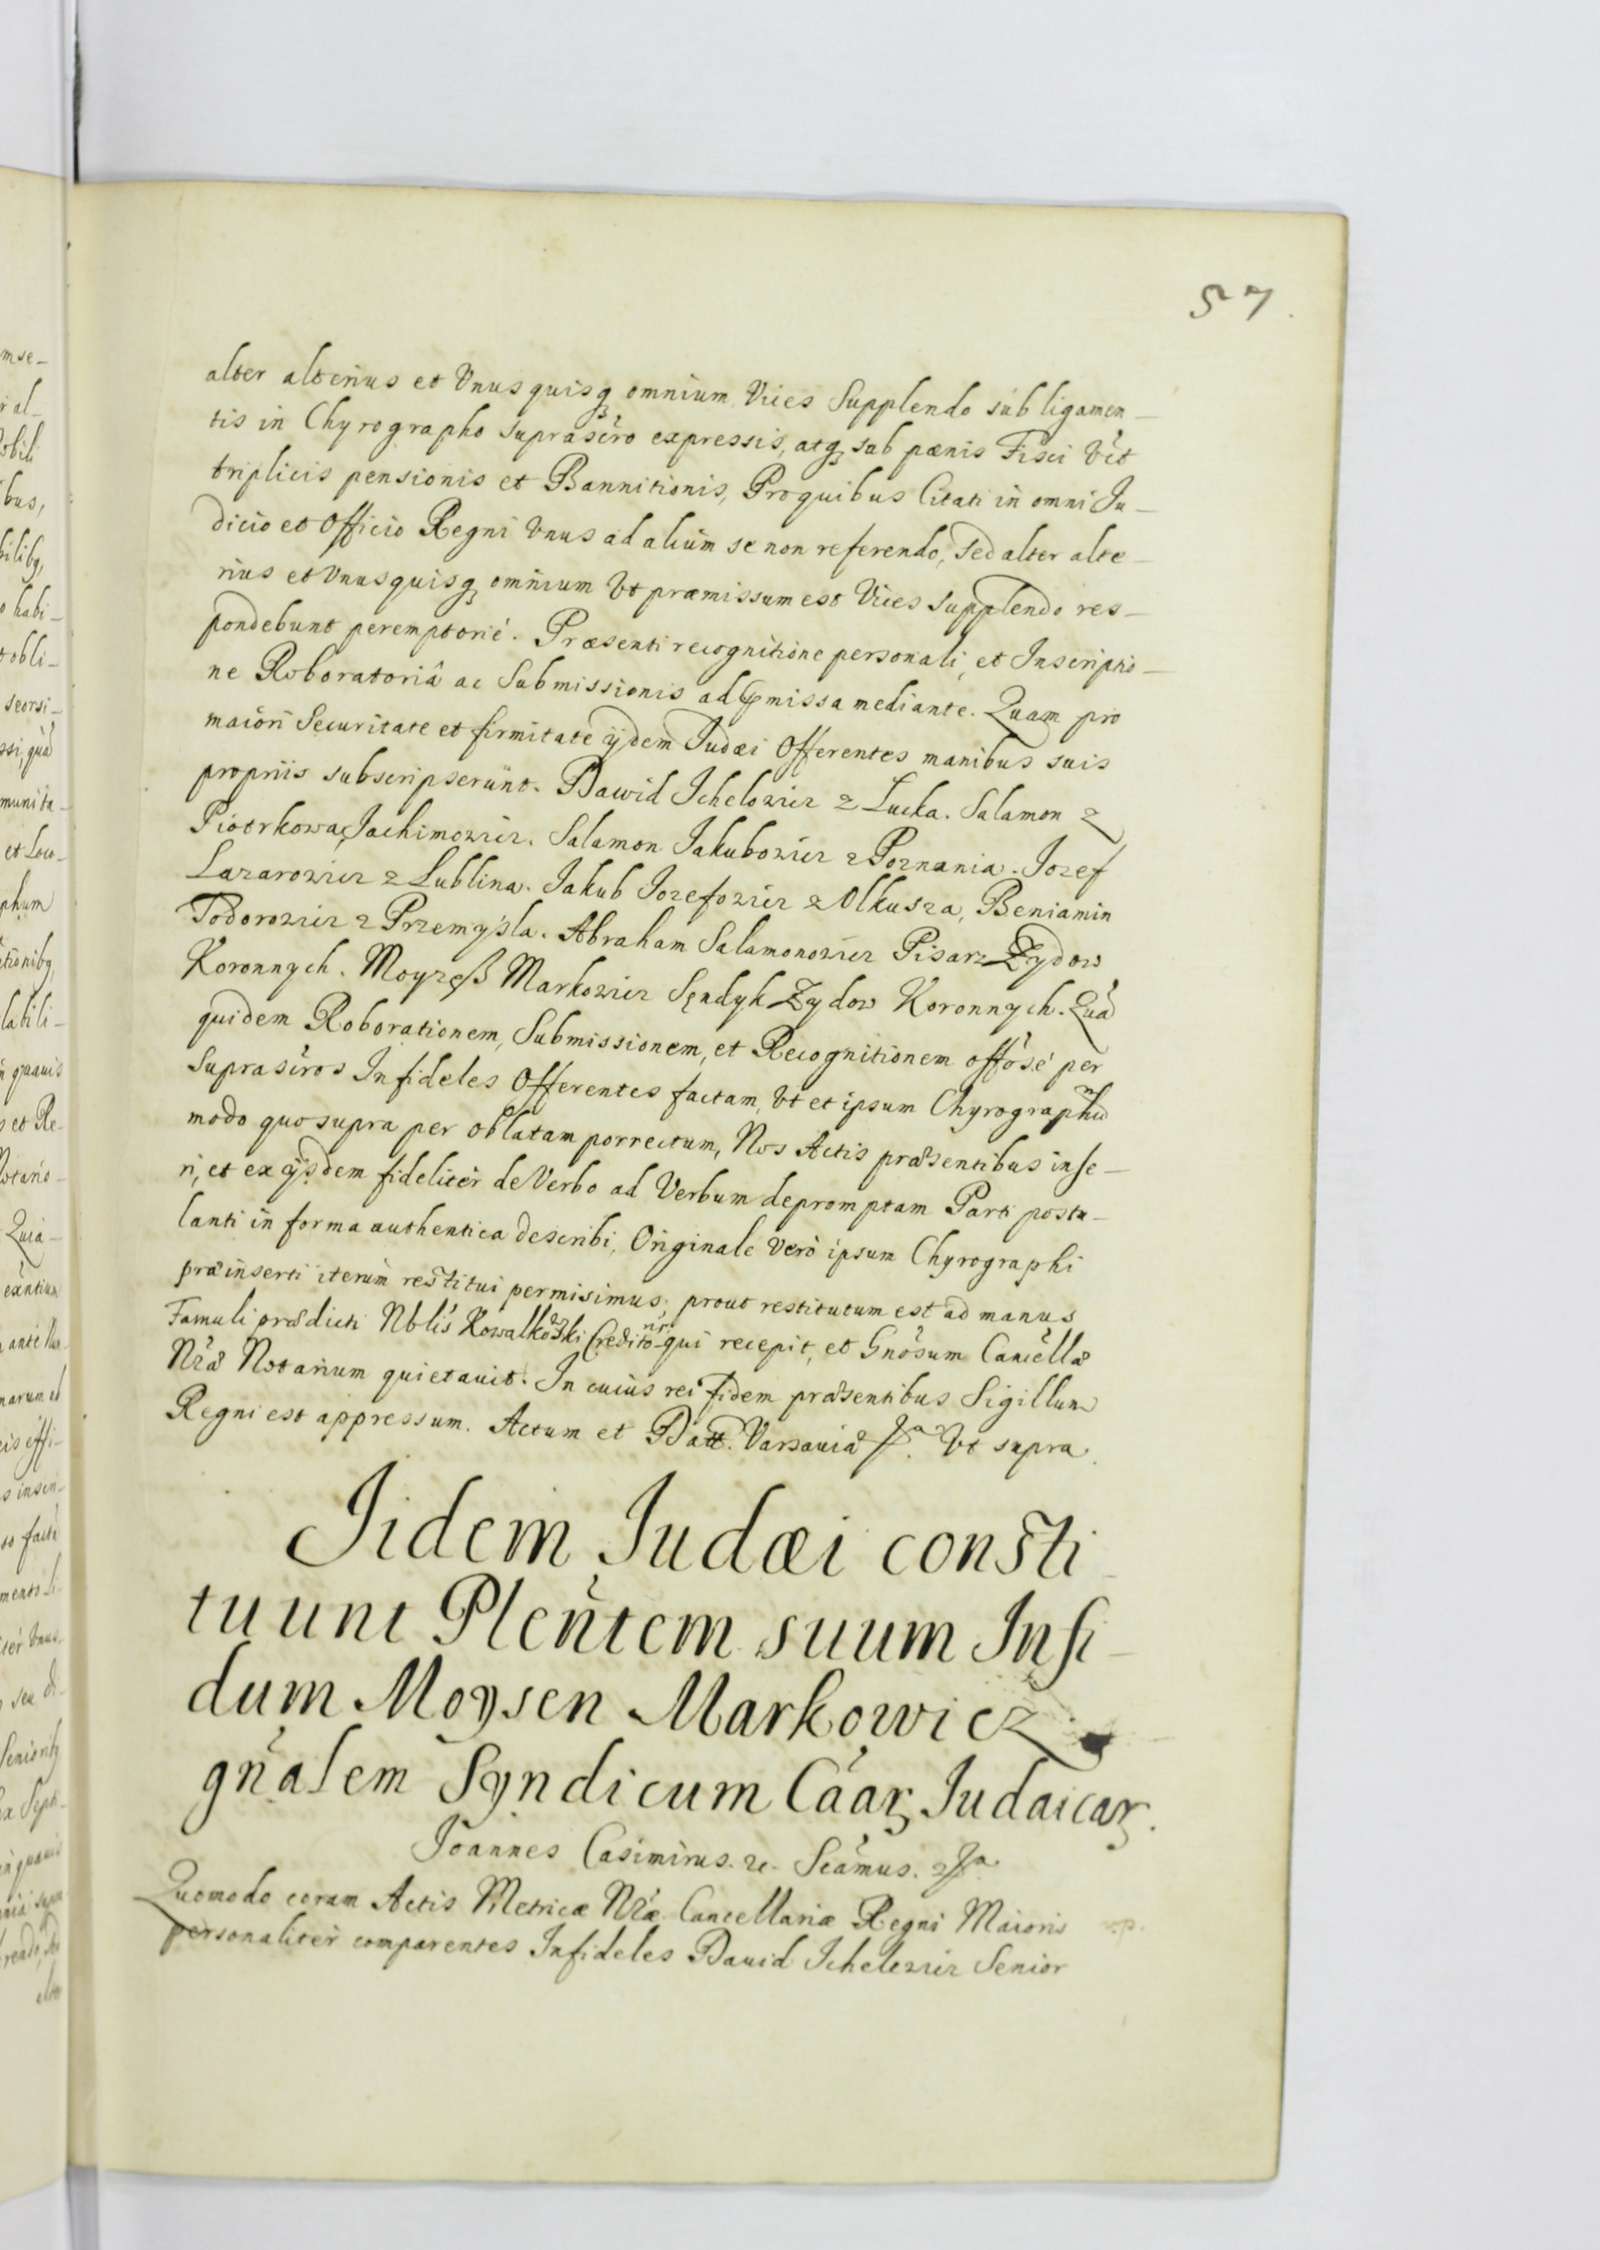 57
alter alterius et Vnusquisq; omnium Vices Supplendo sub ligamen-
tis in Chyrographo suprascro expressis, atq; sub pœnis Fisci Vct
triplicis pensionis et Bannitionis, Pro quibus Citati in omni Ju-
dicio et Officio Regni Vnus ad alium se non referendo, sed alter alte-
rius et Vnusquisq; omnium Vt præmissum est Vices supplendo res-
pondebunt peremptorié. Præsenti recognitione personali, et Inscriptio-
ne Roboratoriâ ac Submissionis ad pmissa mediante. Quam pro
maiori Securitate et firmitate ijdem Judæi Offerentes manibus suis
proprijs subscripserunt. Dawid Ichelowicz z Lucka. Salamon z
Piotrkowa Jachimowicz. Salamon Jakubowicz z Poznania. Jozef
Lazarowicz z Lublina. Jakub Jozefowicz z Olkusza, Beniamin
Todorowicz z Przemyśla. Abraham Salamonowicz Pisarz Zydow
Koronnych. Moyzęß Markowicz Sęndyk Zydow Koronnych. Quã
quidem Roborationem, Submissionem, et Recognitionem offõsé per
Suprascros Infideles Offerentes factam, Vt et ipsum Chyrographũ
modo quo supra per oblatam porrectum, Nos Actis præsentibus inse-
ri, et ex ijsdem fideliter de Verbo ad Verbum depromptam Parti postu-
lanti in forma authentica describi, Originale Verò ipsum Chyrographi
præinserti iterum restitui permisimus, prout restitutum est ad manus
Famuli prædicti Nblis Kowalkowski Creditoris qui recepit, et Gnõsum Cancellæ
Nræ Notarium quietauit. In cuius rei fidem præsentibus Sigillum
Regni est appressum. Actum et Datt. Varsauiæ Vt supra.
Jidem Judæi consti-
tuunt Pleñtem suum Infi-
dum Moysen Markowicz
gñalem Syndicum Cãarz Judaicarz.
Joannes Casimirus. &c. Scãmus.
Quomodo coram Actis Metricæ Nræ Cancellariæ Regni Maioris
personaliter comparentes Infideles Dauid Ichelewicz Senior